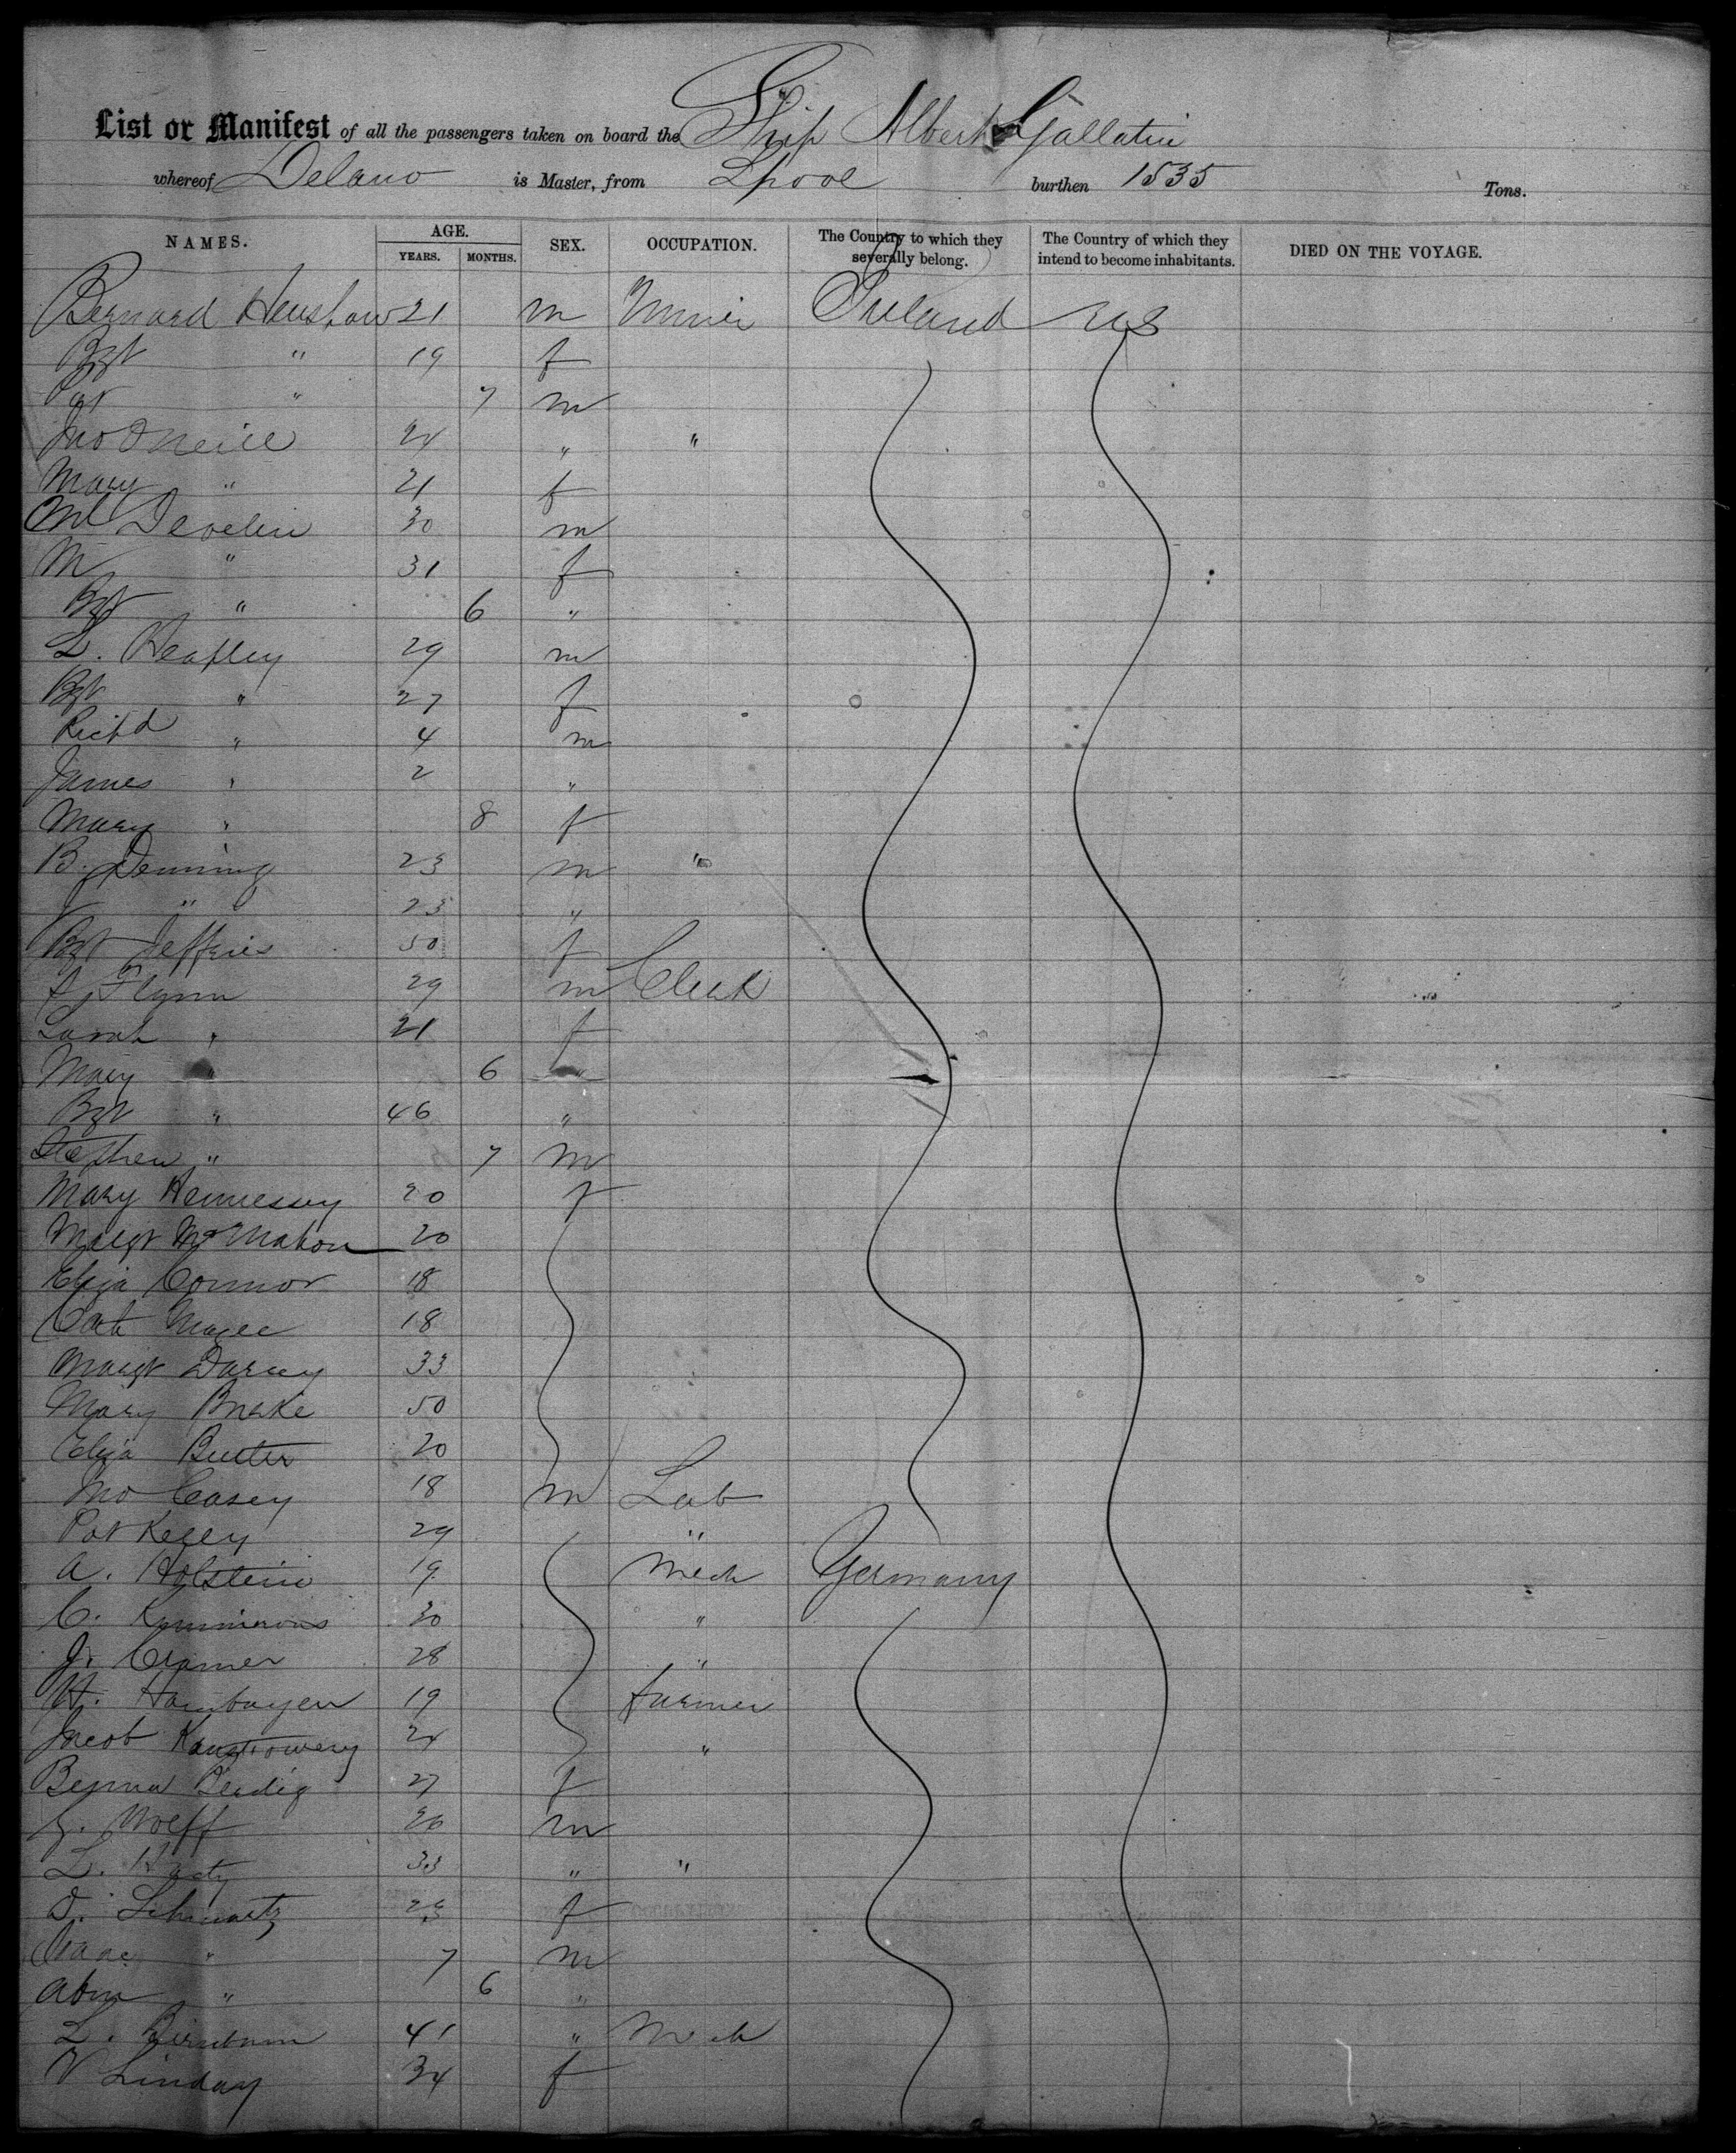 List or Manifest of all the passengers taken on board the Ship Albert Gallatin
whereof Delano is Master, from Lpool burthen 1535 Tons.
NAMES. AGE. YEARS. MONTHS. SEX. OCCUPATION. The Country to which they severally belong. The Country of which they intend to become inhabitants. DIED ON THE VOYAGE.
Bernard Henshaw 21 m Miner Ireland US
Bgt " 19 f
Pat " 7 m
Jno O Neill 24 " "
Mary " 21 f
Ml Develin 30 m
M " 31 f
Bgt " 6 "
L. Heapley 29 m
Bgt " 27 f
Richd " 4 m
James " 2 "
Mary " 8 f
B. Denning 23 m "
" 23 "
Bgt Jeffries 50 f
Flynn 29 m Clerk
Sarah " 21 f
Mary " 6 "
Bgt " 46 "
Stephen " 7 m
Mary Hennessey 20 f
Margt McMahon 20
Eliza Connor 18
Cath Magee 18
Margt Darcey 33
Mary Burke 50
Eliza Butler 20
Jno Casey 18 m Lab
Pat Kelly 29 "
A. Holstein 19 Mech Germany
C. 30 "
J. Cramer 28 "
H. 19 farmer
Jacob 24 "
27 f
Wolff 20 m
L. 33 " "
D. Schwartz 23 f
Isaac " 7 m
Abm " 6 "
L. Birnbaum 41 " Mech
V Linday 34 f